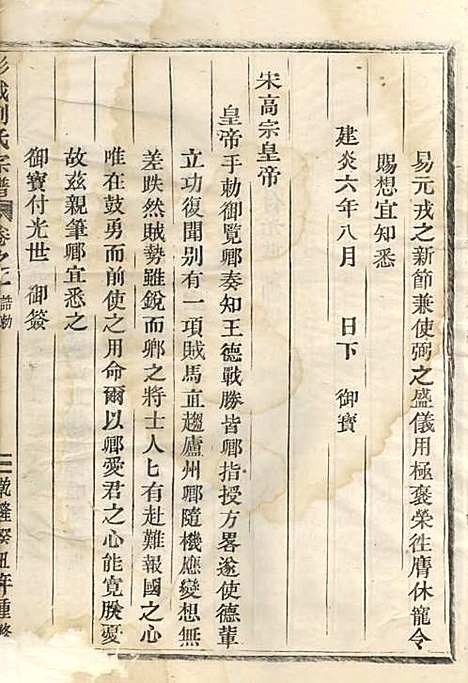 易元戎之新節兼使弼之盛儀用極褒榮徃膺休寵令
賜想宜知悉
建炎六年八月　日下　御寶
宋高宗皇帝
皇帝手勅御覽卿奏知王德戰勝皆卿指授方畧遂使德軰
立功復聞别有一項賊馬直趨廬州卿隨機應變想無
差跌然賊勢雖銳而卿之將士人匕有赴難報國之心
唯在鼓勇而前使之用命爾以卿愛君之心能寛朕憂
故茲親筆卿宜悉之
御寶付光世　御簽
彭城劉氏宗譜　卷之　誥勅　二　乾隆癸丑年重修